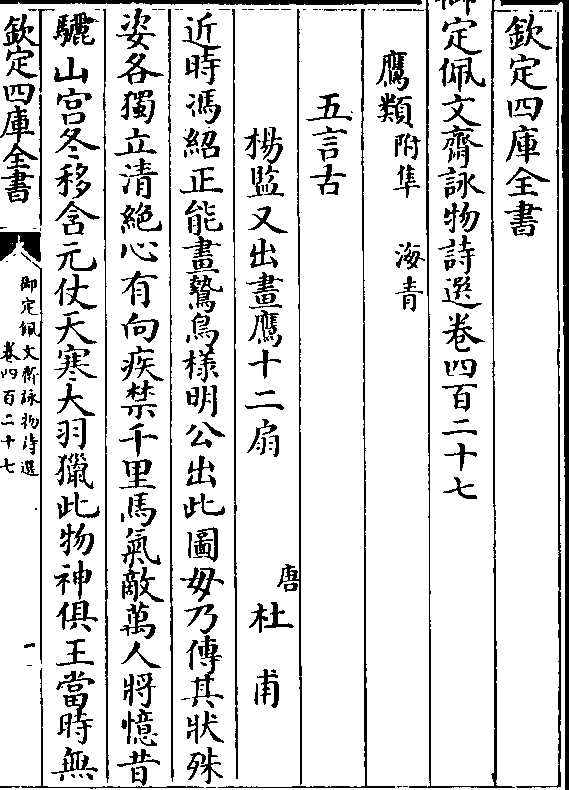 欽定四庫全書
御定佩文齋詠物詩選卷四百二十七
鷹類附隼 海青
五言古
楊監又出畫鷹十二扇 唐杜甫
近時馮紹正能畫鷙鳥様明公出此圖毋乃傳其狀殊
姿各獨立清絶心有向疾禁千里馬氣敵萬人將憶昔
驪山宫冬移含元仗天寒大羽獵此物神俱王當時無
欽定四庫全書
御定佩文齋詠物詩選
卷四百二十七
一